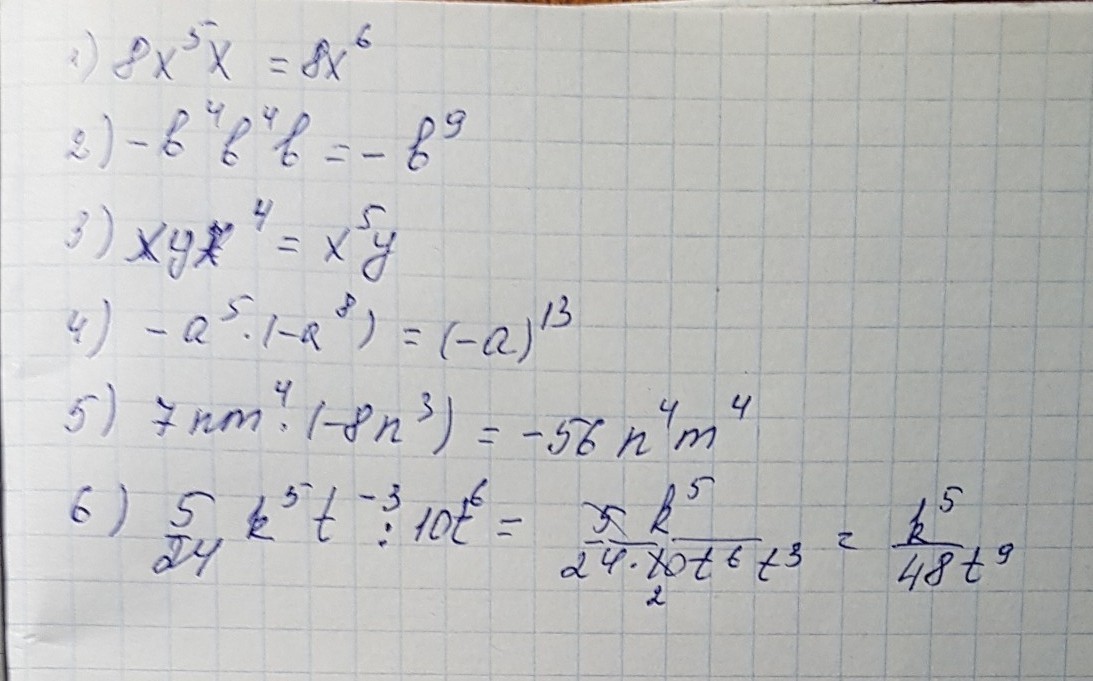 1) 8x⁵x = 8x⁶
2) -b⁴b⁴b = -b⁹
3) xyx⁴ = x⁵y
4) -a⁵·(-a⁸) = (-a)¹³
5) 7nm⁴·(-8n³) = -56n⁴m⁴
6) 5/24 k⁵t⁻³ : 10t⁶ = 5k⁵/24·10t⁶t³ = k⁵/48t⁹
2